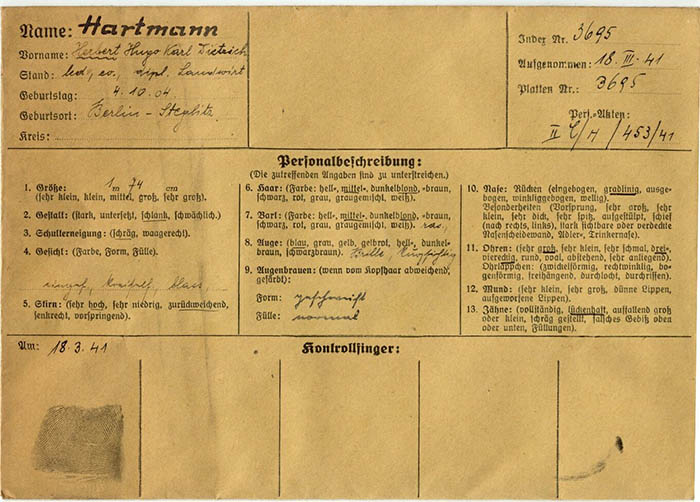 Name: Hartmann
Vorname: Herbert Hugo Karl Dietrich
Stand: led., ev., dipl. Landwirt
Geburtstag: 4.10.04.
Geburtsort: Berlin-Steglitz
Kreis:
Index Nr. 3695
Aufgenommen: 18. III. 41
Platten Nr.: 3695
Pers.-Akten:
II C/H /453/41
Personalbeschreibung:
(Die zutreffenden Angaben sind zu unterstreichen.)
1. Größe: 1 m 74 cm
(sehr klein, klein, mittel, groß, sehr groß).
2. Gestalt: (stark, untersetzt, schlank, schwächlich).
3. Schulterneigung: (schräg, waagerecht).
4. Gesicht: (Farbe, Form, Fülle).
blass
5. Stirn: (sehr hoch, sehr niedrig, zurückweichend,
senkrecht, vorspringend).
6. Haar: (Farbe: hell-, mittel-, dunkelblond, -braun,
schwarz, rot, grau, graugemischt, weiß).
7. Bart: (Farbe: hell-, mittel-, dunkelblond, -braun,
schwarz, rot, grau, graugemischt, weiß). ras.
8. Auge: (blau, grau, gelb, gelbrot, hell-, dunkel-
braun, schwarzbraun). Brille, Kurzsichtig
9. Augenbrauen: (wenn vom Kopfhaar abweichend,
gefärbt):
Form: geschweift
Fülle: normal
10. Nase: Rücken (eingebogen, gradlinig, ausge-
bogen, winkliggebogen, wellig).
Besonderheiten (Vorsprung, sehr groß, sehr
klein, sehr dick, sehr spitz, aufgestülpt, schief
(nach rechts, links), stark sichtbare oder verdeckte
Nasenscheidewand, Adler-, Trinkernase).
11. Ohren: (sehr groß, sehr klein, sehr schmal, drei-,
viereckig, rund, oval, abstehend, sehr anliegend).
Ohrläppchen: (zwickelförmig, rechtwinklig, bo-
genförmig, freihängend, durchlocht, durchrissen).
12. Mund: (sehr klein, sehr groß, dünne Lippen,
aufgeworfene Lippen).
13. Zähne: (vollständig, lückenhaft, auffallend groß
oder klein, schräg gestellt, falsches Gebiß oben
oder unten, Füllungen).
Am: 18.3.41
Kontrollfinger: